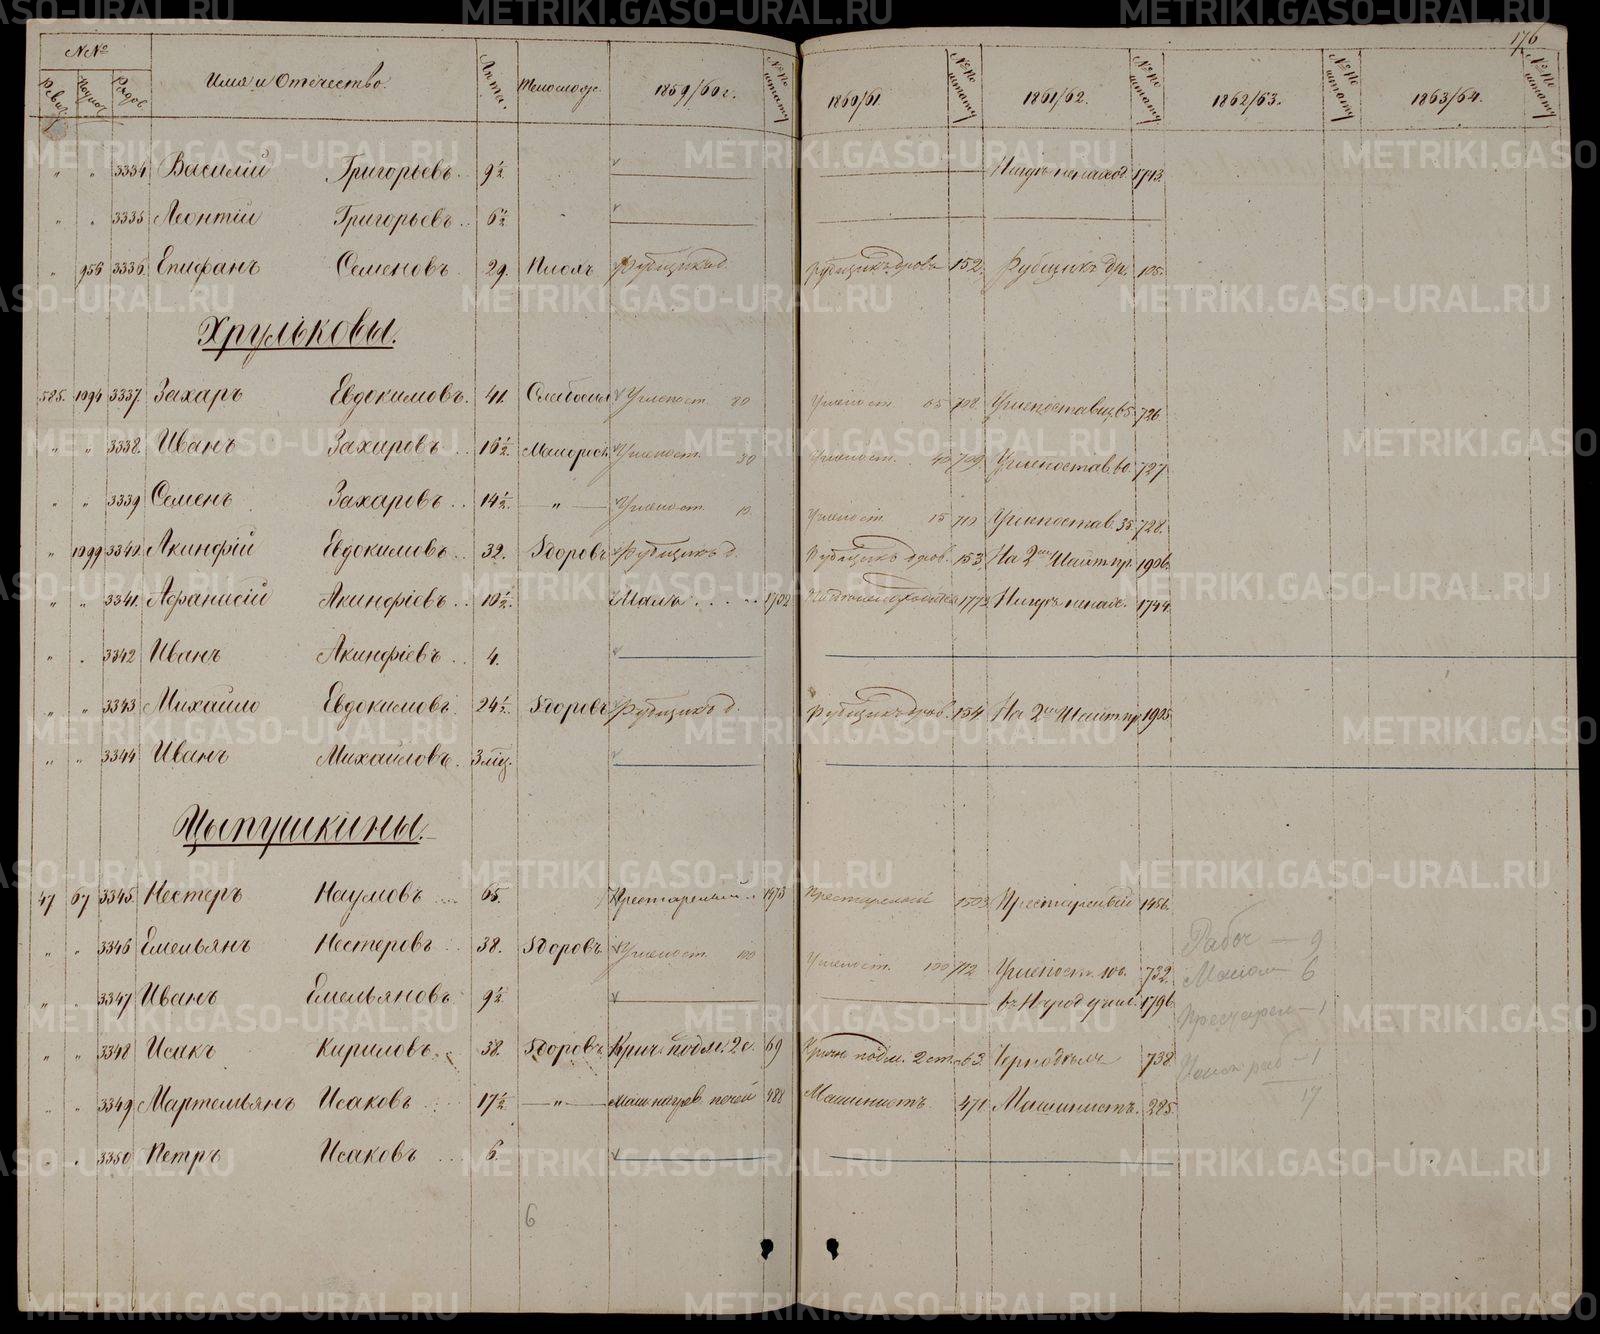 176
№№ Имя и Отчество. Лѣта. Телослож. 1859/60 г. №№ по штату 1860/61. №№ по штату 1861/62. №№ по штату 1862/63. №№ по штату 1863/64. №№ по штату
Ревиз. Рядов.
" " 3334 Василій Григорьевъ. 9½ 1713.
" " 3335 Леонтій Григорьевъ .. 6½
" 956 3336. Епифанъ Семеновъ. 29. Плохъ Рубщикъ д. Рубщикъ дровъ 152. Рубщикъ др. 105.
Хрульковы.
585. 1094 3337. Захаръ Евдокимовъ. 41. Углепост. 80 Углепост. 65 708. Углепоставщ. 65. 726.
" " 3338. Иванъ Захаровъ .. 16½ Малоросл. Углепост. 30 Углепост. 40 709. Углепостав. 60. 727.
" " 3339 Семенъ Захаровъ .. 14½ — " — Углепост. 10. Углепост. 15 710 Углепостав. 35 728.
" 1099 3340. Акинфій Евдокимовъ .. 32. Здоровъ Рубщикъ д. Рубщикъ дров. 153. На 2й 1906.
" " 3341. Афанасій Акинфіевъ .. 10½. Малъ . . . . 1702 1773. 1744.
" " 3342 Иванъ Акинфіевъ .. 4.
" " 3343 Михайло Евдокимовъ. 24½. Здоровъ Рубщикъ д. Рубщикъ дров. 154. На 2й 1905
" " 3344 Иванъ Михайловъ. 3 мѣц.
Цыпушкины.
47 67 3345. Нестеръ Наумовъ .... 65. Престарелый .. 1473 Престарелый 1503. Престарелый 1486.
" " 3346 Емельянъ Нестеровъ . . 38. Здоровъ. Углепост. 100 Углепост. 100 712 Углепост. 100. 732.
" " 3347 Иванъ Емельяновъ 9½ въ Народ. учил. 1796
" " 3348 Исакъ Кириловъ. . 38. Здоровъ. Крич. подм. 2 с. 69 Крич. подм. 2 ст. 63. 738.
" " 3349 Мартемьянъ Исаковъ . : 17½ — " — 488 Машинистъ. 471 Машинистъ. 285.
" " 3350 Петръ Исаковъ ... 6.
Рабоч — 9
6
Престарел — 1
— 1
17
6
METRIKI.GASO-URAL.RU